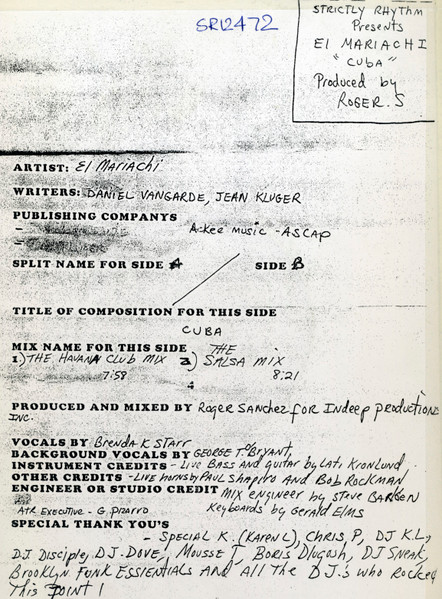 SR12472
STRICTLY RHYTHM
Presents
El MARIACHI
"CUBA"
Produced by
ROGER.S
ARTIST: El Mariachi
WRITERS: DANIEL VANGARDE, JEAN KLUGER
PUBLISHING COMPANYS
- Ackee music - ASCAP
-
SPLIT NAME FOR SIDE A SIDE B
TITLE OF COMPOSITION FOR THIS SIDE
CUBA
MIX NAME FOR THIS SIDE THE
1.) THE HAVANA CLUB MIX 2) SALSA MIX
7:58 8:21
PRODUCED AND MIXED BY Roger Sanchez for Indeep productions
INC.
VOCALS BY Brenda K Starr
BACKGROUND VOCALS BY GEORGE T. Bryant,
INSTRUMENT CREDITS - Live Bass and guitar by Lati Kronlund,
OTHER CREDITS - Live horns by Paul Shapiro and Bob Rockman,
ENGINEER OR STUDIO CREDIT MIX engineer by Steve Barken
A+R Executive - G. Pizarro Keyboards by Gerald Elms
SPECIAL THANK YOU'S
- Special K. (Karen L), Chris, P, DJ K.L,
DJ Disciple, DJ. DOVE, Mousse T, Boris Dlugosh, DJ Sneak,
Brooklyn Funk Essientials And All The D.J.'s who Rocked
This Joint!